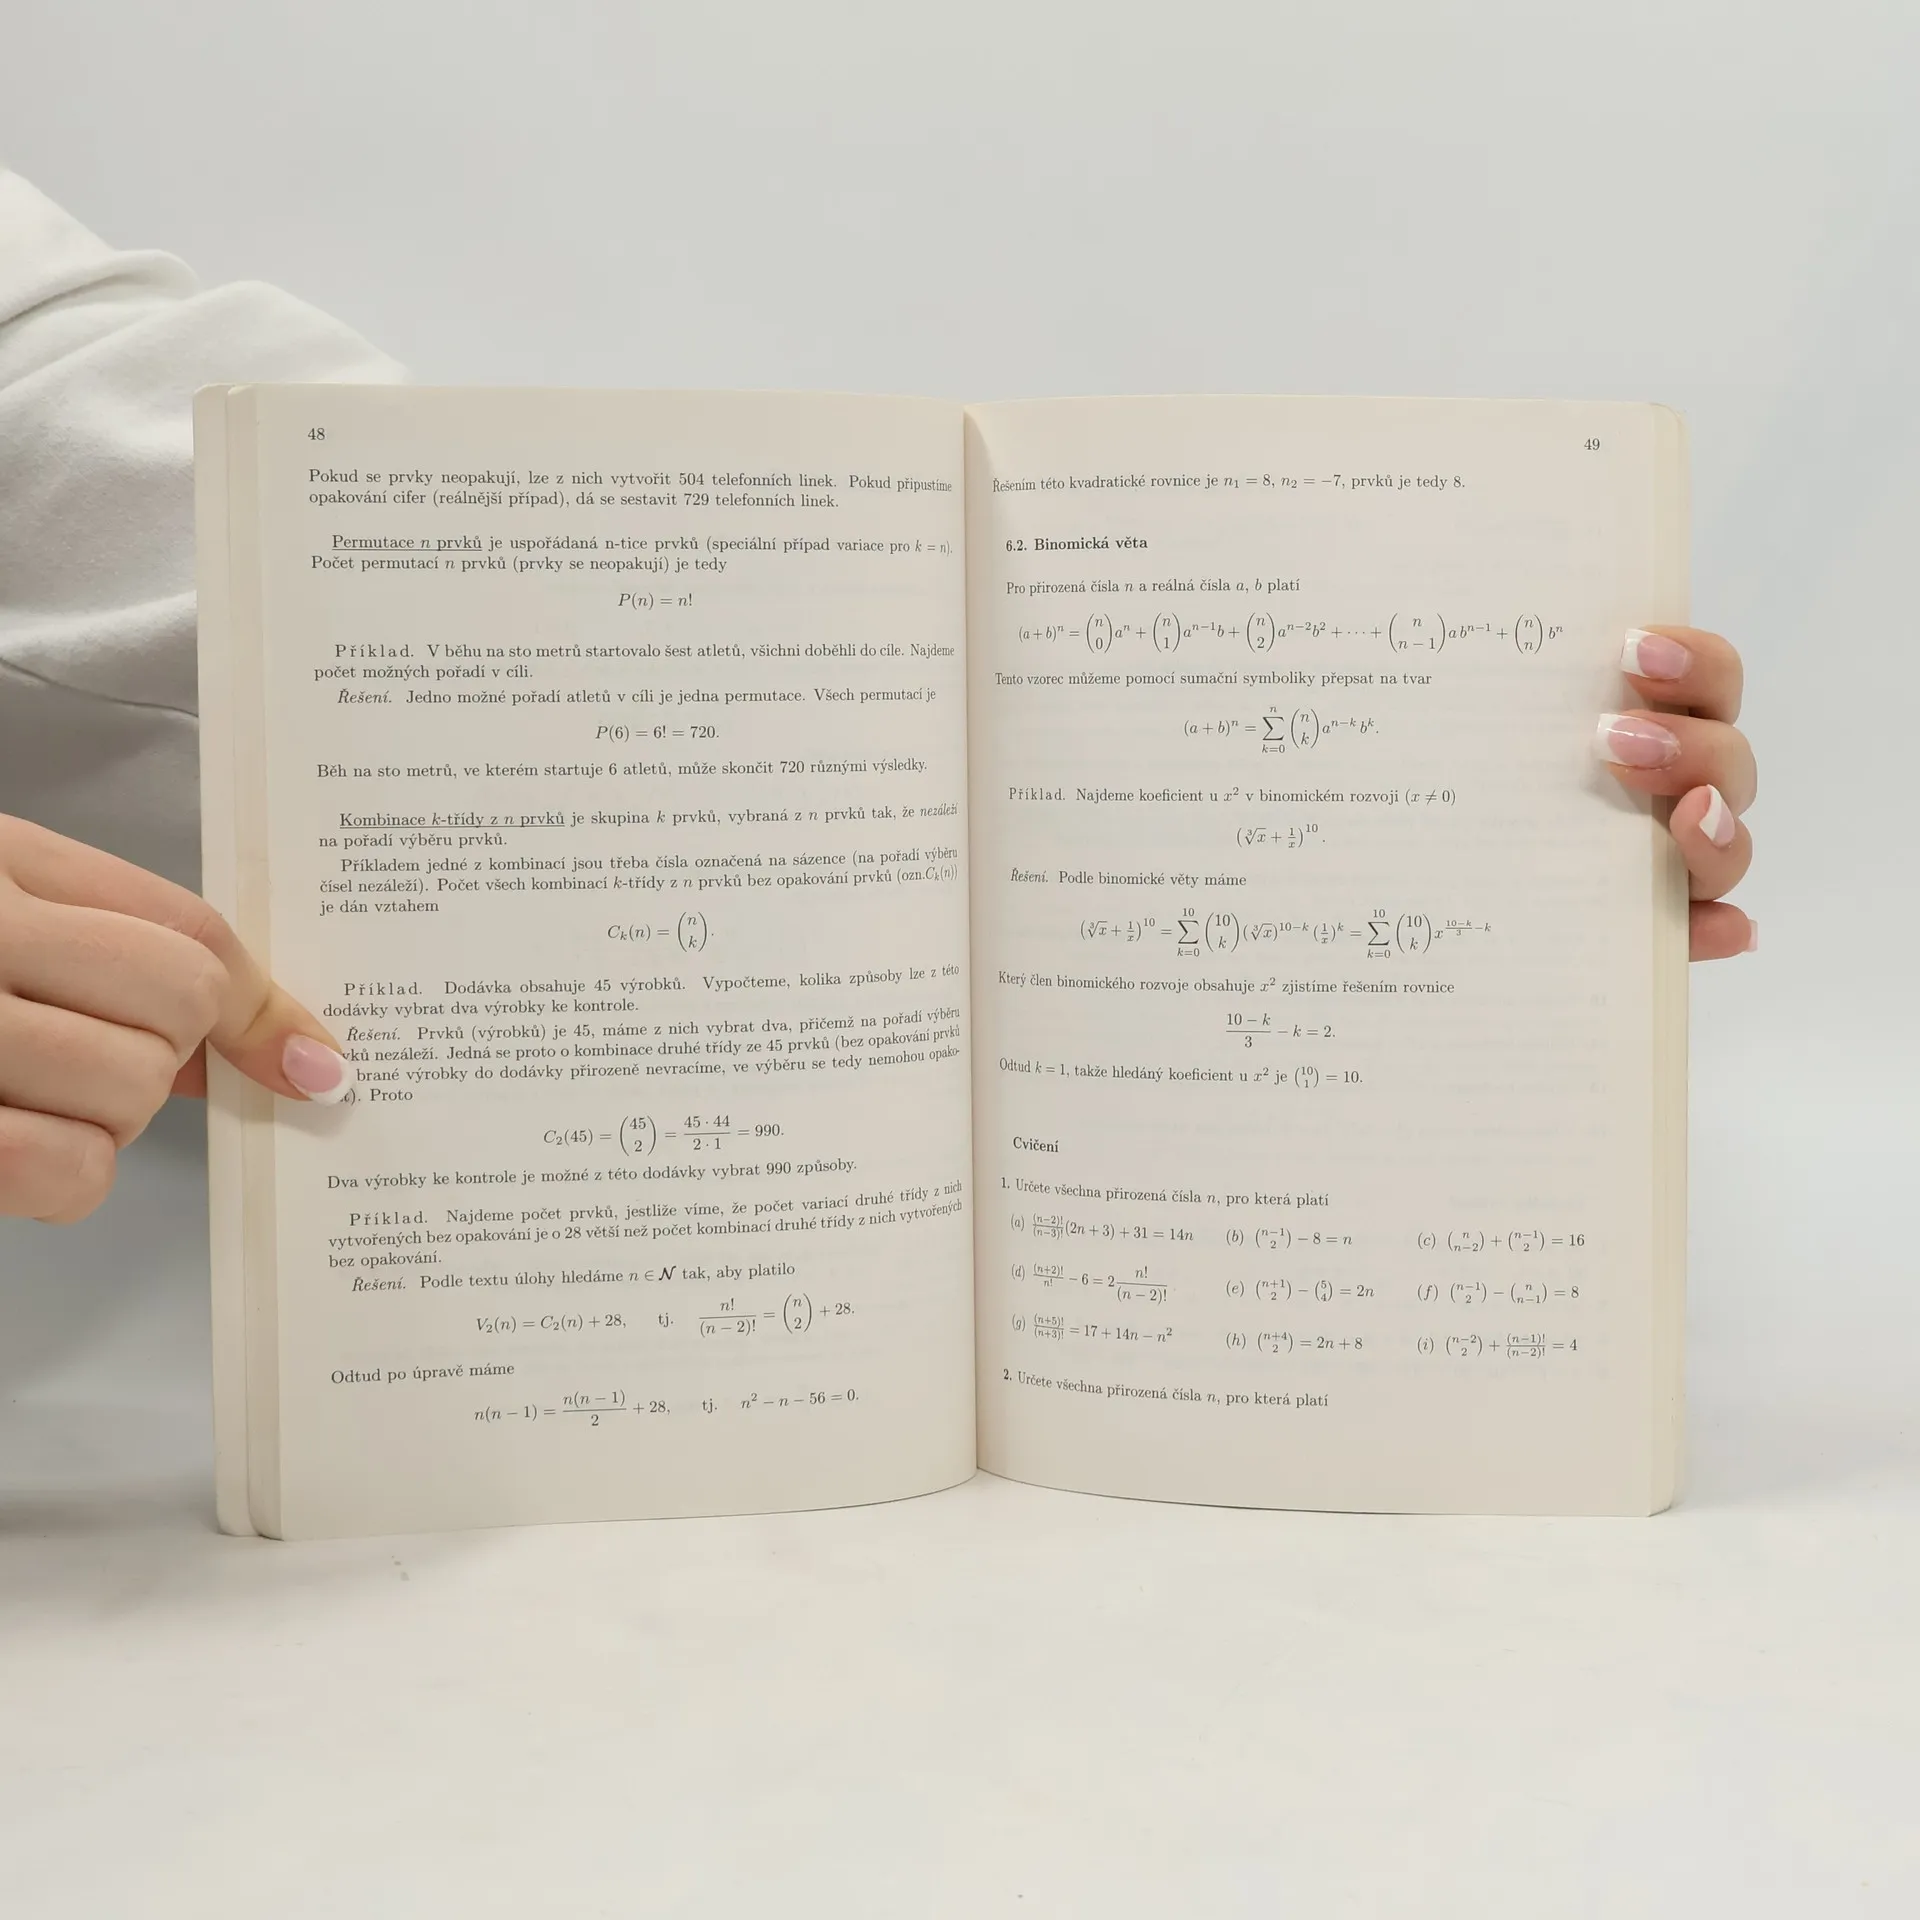 48
Pokud se prvky neopakují, lze z nich vytvořit 504 telefonních linek. Pokud připustíme
opakování cifer (reálnější případ), dá se sestavit 729 telefonních linek.
Permutace n prvků je uspořádaná n-tice prvků (speciální případ variace pro k = n).
Počet permutací n prvků (prvky se neopakují) je tedy
P(n) = n!
Příklad. V běhu na sto metrů startovalo šest atletů, všichni doběhli do cíle. Najdeme
počet možných pořadí v cíli.
Řešení. Jedno možné pořadí atletů v cíli je jedna permutace. Všech permutací je
P(6) = 6! = 720.
Běh na sto metrů, ve kterém startuje 6 atletů, může skončit 720 různými výsledky.
Kombinace k-třídy z n prvků je skupina k prvků, vybraná z n prvků tak, že nezáleží
na pořadí výběru prvků.
Příkladem jedné z kombinací jsou třeba čísla označená na sázence (na pořadí výběru
čísel nezáleží). Počet všech kombinací k-třídy z n prvků bez opakování prvků (ozn.C_k(n))
je dán vztahem
C_k(n) = \binom{n}{k}.
Příklad. Dodávka obsahuje 45 výrobků. Vypočteme, kolika způsoby lze z této
dodávky vybrat dva výrobky ke kontrole.
Řešení. Prvků (výrobků) je 45, máme z nich vybrat dva, přičemž na pořadí výběru
vků nezáleží. Jedná se proto o kombinace druhé třídy ze 45 prvků (bez opakování prvků
brané výrobky do dodávky přirozeně nevracíme, ve výběru se tedy nemohou opako-
). Proto
C_2(45) = \binom{45}{2} = \frac{45 · 44}{2 · 1} = 990.
Dva výrobky ke kontrole je možné z této dodávky vybrat 990 způsoby.
Příklad. Najdeme počet prvků, jestliže víme, že počet variací druhé třídy z nich
vytvořených bez opakování je o 28 větší než počet kombinací druhé třídy z nich vytvořených
bez opakování.
Řešení. Podle textu úlohy hledáme n ∈ N tak, aby platilo
V_2(n) = C_2(n) + 28, tj. \frac{n!}{(n − 2)!} = \binom{n}{2} + 28.
Odtud po úpravě máme
n(n − 1) = \frac{n(n − 1)}{2} + 28, tj. n^2 − n − 56 = 0.
49
Řešením této kvadratické rovnice je n_1 = 8, n_2 = −7, prvků je tedy 8.
6.2. Binomická věta
Pro přirozená čísla n a reálná čísla a, b platí
(a + b)^n = \binom{n}{0}a^n + \binom{n}{1}a^{n−1}b + \binom{n}{2}a^{n−2}b^2 + ··· + \binom{n}{n − 1}a b^{n−1} + \binom{n}{n}b^n
Tento vzorec můžeme pomocí sumační symboliky přepsat na tvar
(a + b)^n = \sum_{k=0}^{n} \binom{n}{k}a^{n−k} b^k.
Příklad. Najdeme koeficient u x^2 v binomickém rozvoji (x ≠ 0)
(\sqrt[3]{x} + \frac{1}{x})^{10}.
Řešení. Podle binomické věty máme
(\sqrt[3]{x} + \frac{1}{x})^{10} = \sum_{k=0}^{10} \binom{10}{k}(\sqrt[3]{x})^{10−k}(\frac{1}{x})^k = \sum_{k=0}^{10} \binom{10}{k}x^{\frac{10−k}{3}−k}
Který člen binomického rozvoje obsahuje x^2 zjistíme řešením rovnice
\frac{10 − k}{3} − k = 2.
Odtud k = 1, takže hledáný koeficient u x^2 je \binom{10}{1} = 10.
Cvičení
1. Určete všechna přirozená čísla n, pro která platí
(a) \frac{(n−2)!}{(n−3)!}(2n + 3) + 31 = 14n (b) \binom{n−1}{2} − 8 = n (c) \binom{n}{n−2} + \binom{n−1}{2} = 16
(d) \frac{(n+2)!}{n!} − 6 = 2\frac{n!}{(n − 2)!} (e) \binom{n+1}{2} − \binom{5}{4} = 2n (f) \binom{n−1}{2} − \binom{n}{n−1} = 8
(g) \frac{(n+5)!}{(n+3)!} = 17 + 14n − n^2 (h) \binom{n+4}{2} = 2n + 8 (i) \binom{n−2}{2} + \frac{(n−1)!}{(n−2)!} = 4
2. Určete všechna přirozená čísla n, pro která platí